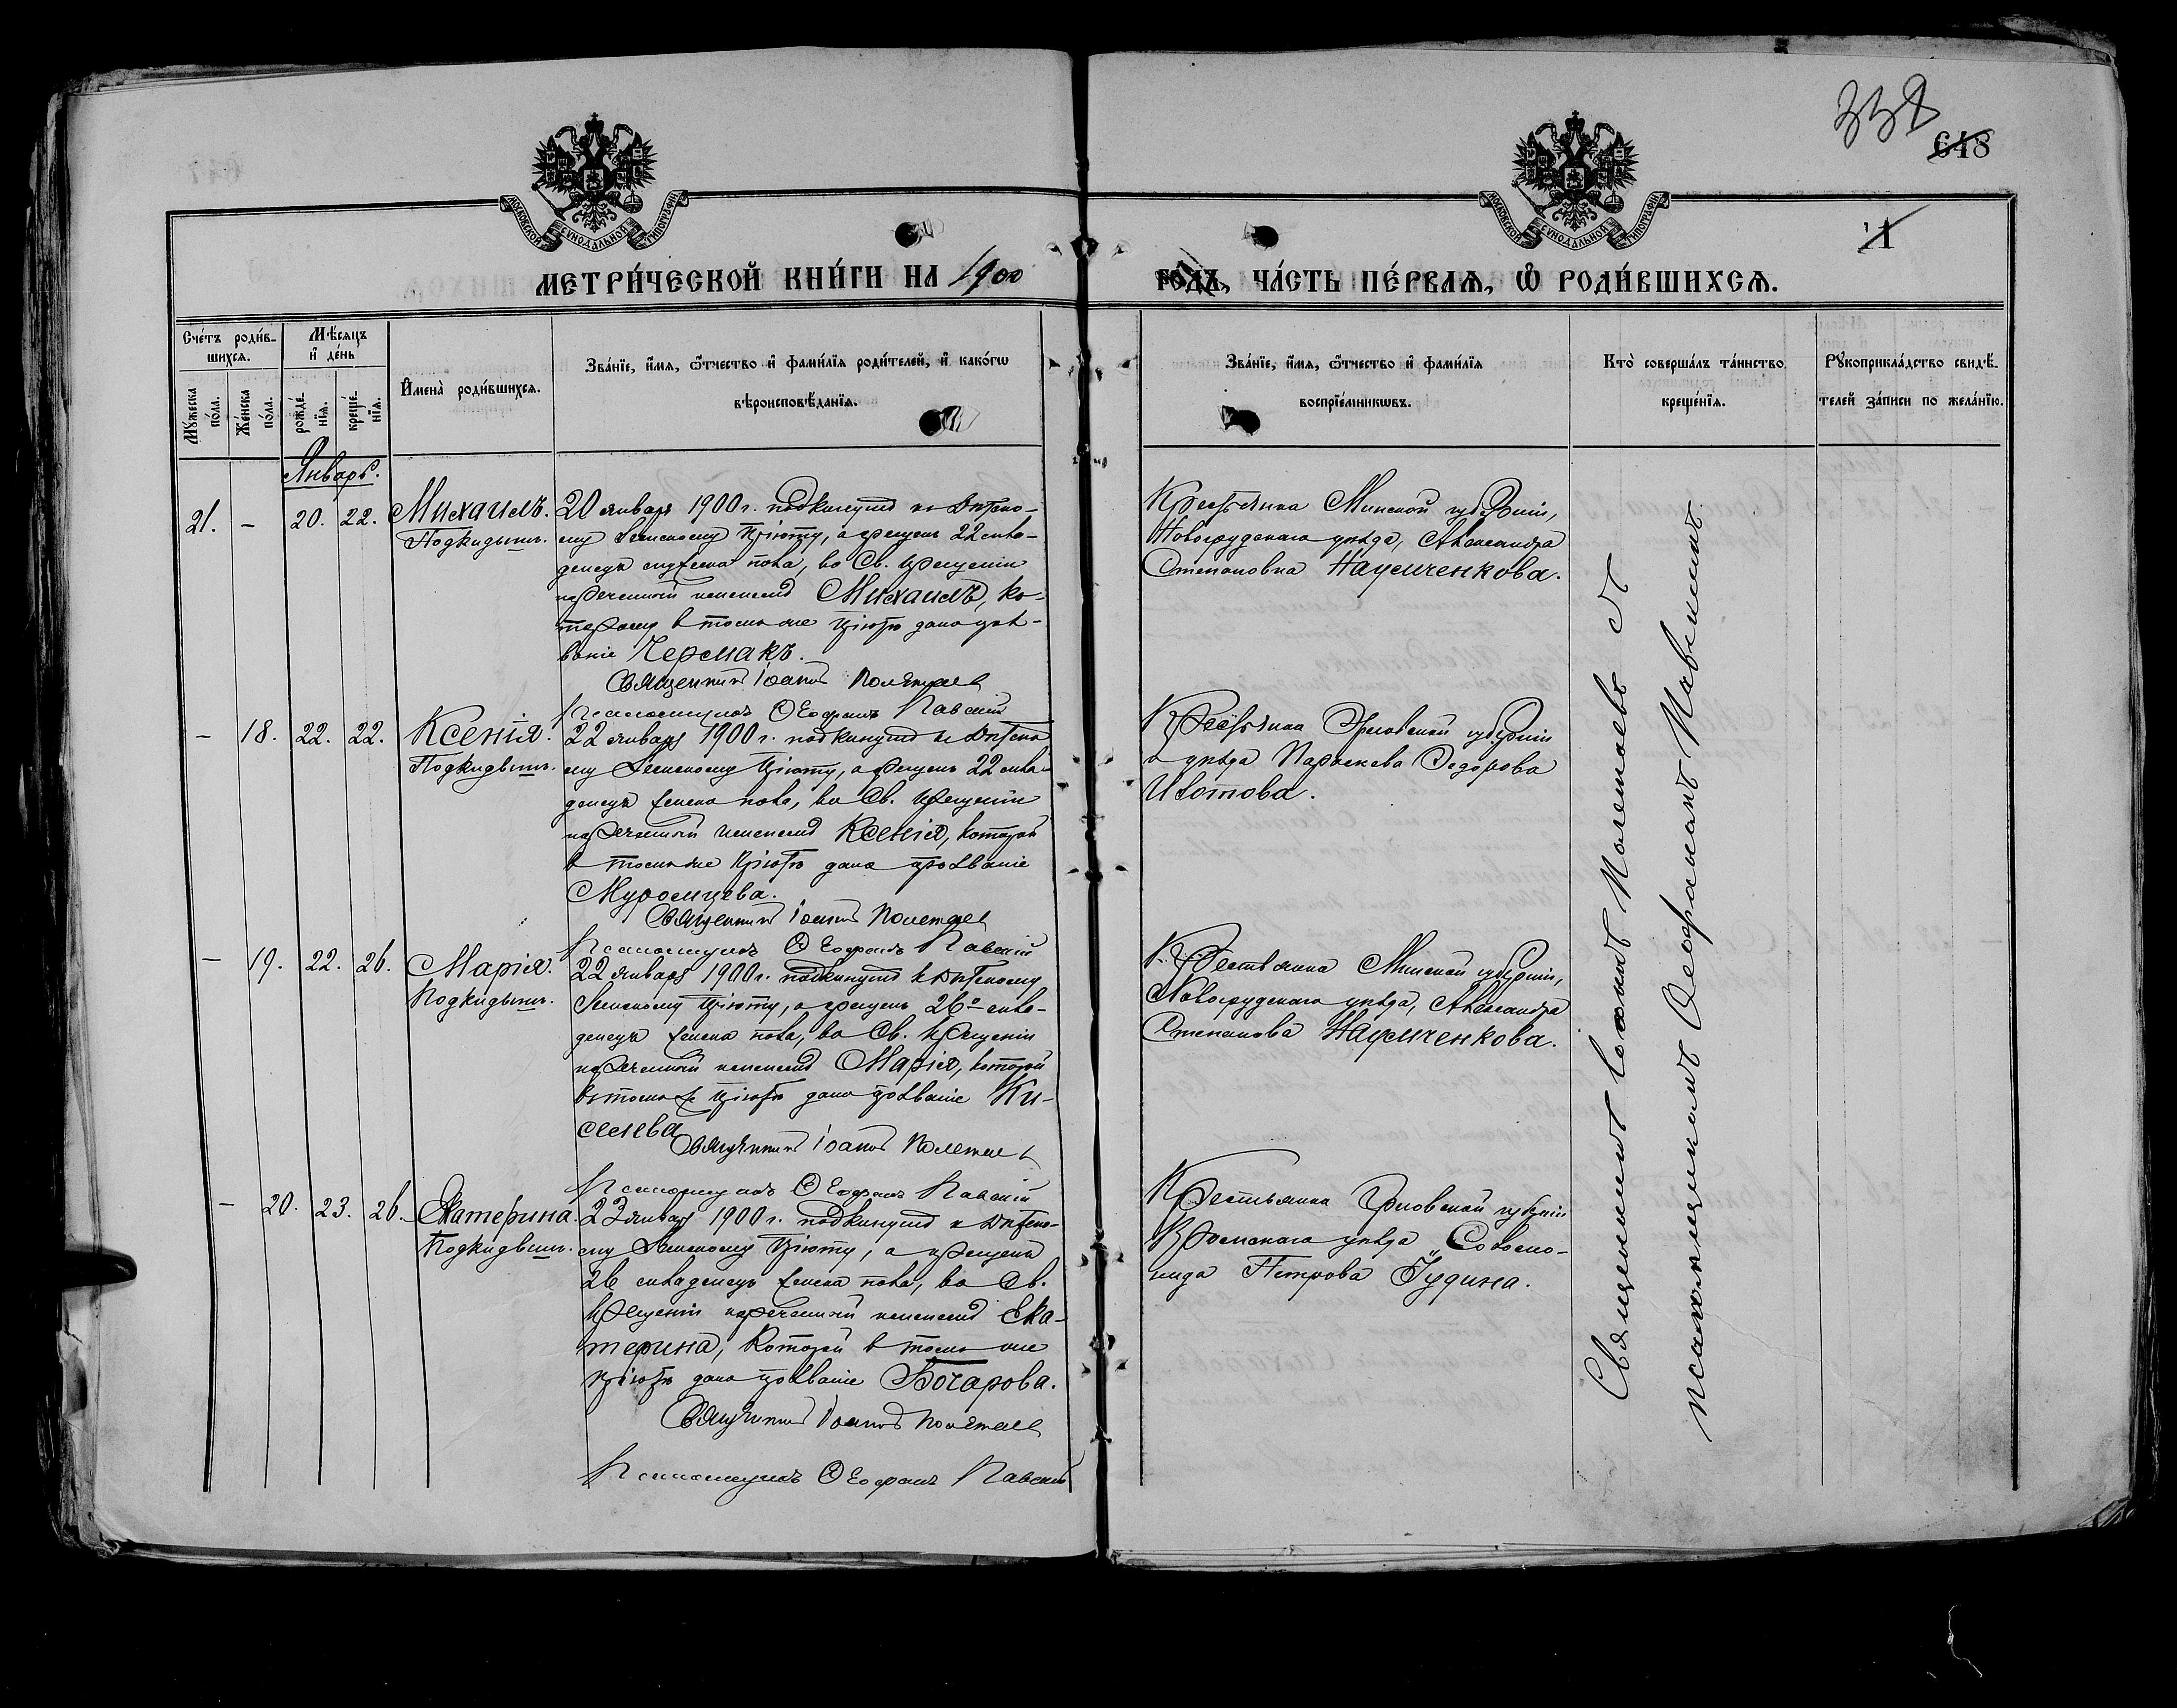 338
648
МОСКОВСКОЙ СѴНОДАЛЬНОЙ ТИПОГРАФІИ
МОСКОВСКОЙ СѴНОДАЛЬНОЙ ТИПОГРАФІИ
11
МЕТРИ́ЧЕСКОЙ КНИ́ГИ НА 1900
ГО́ДЪ, ЧА́СТЬ ПЕ́РВАЯ, Ѽ РОДИ́ВШИХСѦ.
Сче́тъ роди́в-
шихсѧ.
Мꙋ́жеска по́ла.
Же́нска по́ла.
Мѣ́сѧцъ
и҆ де́нь
рожде́-нїѧ.
креще́-нїѧ.
И҆мена̀ роди́вшихсѧ.
Зва́нїе, и҆́мѧ, ѻ҆́тчество и҆ фами́лїѧ роди́телей, и҆ како́гѡ
вѣроисповѣ́данїѧ.
Зва́нїе, и҆́мѧ, ѻ҆́тчество и҆ фами́лїѧ
воспрїе́мникѡвъ.
Кто̀ соверша́лъ та́инство
креще́нїѧ.
Рꙋкоприкла́дство свидѣ́-
телей за́писи по жела́нїю.
Январь.
21. – 20. 22. Михаилъ.
Подкидышъ.
20 января 1900 г. подкинутъ къ Дѣтско-
му Земскому Пріюту, а крещенъ 22 мла-
денецъ мужеска пола, во Св. Крещеніи
нареченный именемъ Михаилъ, ко-
торому въ томъ же Пріютѣ дано проз-
ваніе Чермакъ.
Священникъ Іоаннъ Полетаев
Псаломщикъ Ѳеофанъ Павскій
Крестьянка Минской губерніи,
Новогрудскаго уѣзда, Александра
Степановна Наумченкова.
– 18. 22. 22. Ксенія.
Подкидышъ.
22 января 1900 г. подкинутъ къ Дѣтско
му Земскому Пріюту, а крещенъ 22 мла-
денецъ женска пола, во Св. Крещеніи
нареченный именемъ Ксенія, которой
въ томъ же Пріютѣ дано прозваніе
Муромцева.
Священникъ Іоаннъ Полетаев
Псаломщикъ Ѳеофанъ Павскій
Крестьянка Орловской губерніи
и уѣзда Параскева Федорова
Изотова.
– 19. 22. 26. Марія.
Подкидышъ.
22 января 1900 г. подкинутъ къ Дѣтскому
Земскому Пріюту, а крещенъ 26го мла-
денецъ женска пола, во Св. Крещеніи
нареченный именемъ Марія, которой
въ томъ же Пріютѣ дано прозваніе Ки-
селева
Священникъ Іоаннъ Полетаев
Псаломщикъ Ѳеофанъ Павскій
Крестьянка Минской губерніи,
Новогрудскаго уѣзда, Александра
Степанова Наумченкова.
– 20. 23. 26. Екатерина.
Подкидышъ.
23 января 1900 г. подкинутъ къ Дѣтско-
му Земскому Пріюту, а крещенъ
26 младенецъ женска пола, во Св.
Крещеніи нареченный именемъ Ека-
терина, которой въ томъ же
пріютѣ дано прозваніе Бочарова.
Священникъ Іоаннъ Полетаев
Псаломщикъ Ѳеофанъ Павскій
Крестьянка Орловской губерніи
Кромскаго уѣзда Соломо-
нида Петрова Гудина.
Священникъ Іоаннъ Полетаевъ съ
псаломщикомъ Ѳеофаномъ Павскимъ.